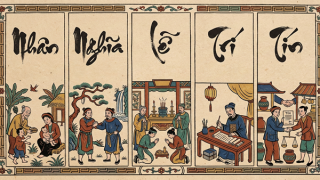 Nhân Nghĩa Lễ Trí Tín